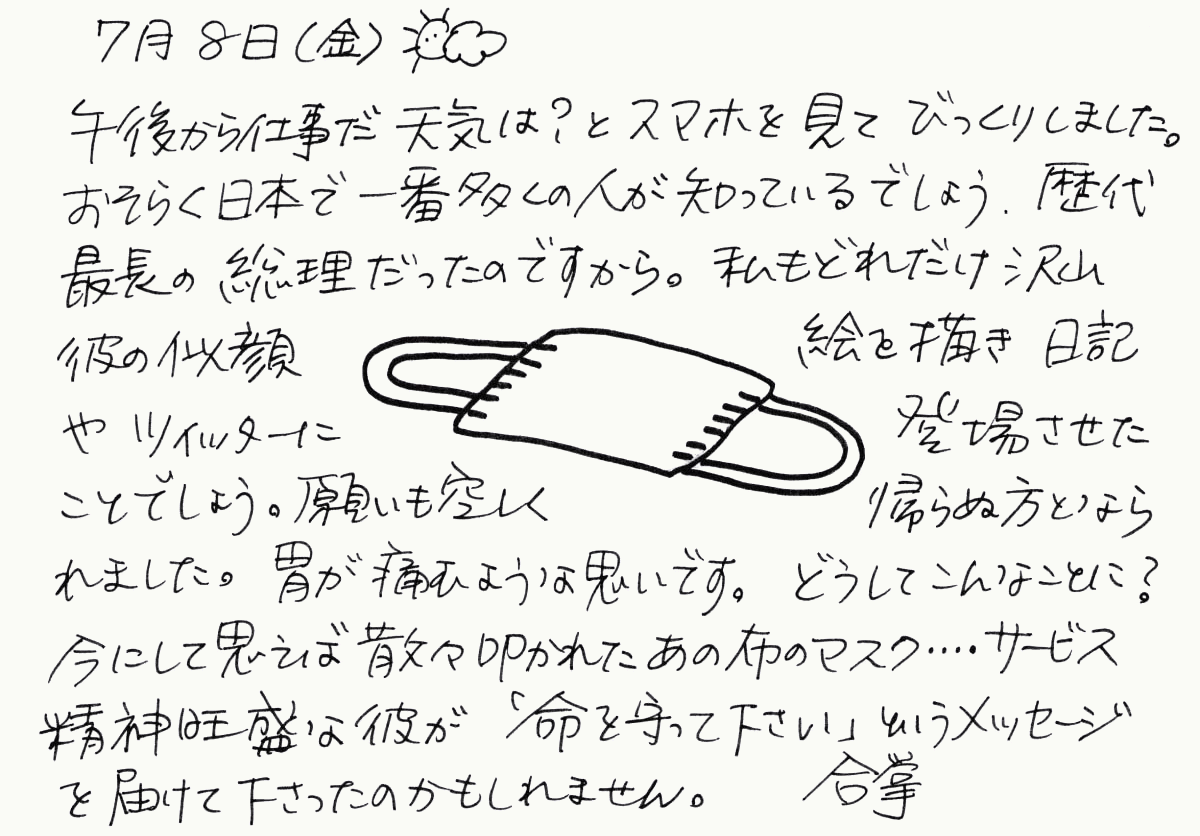 7月8日(金)
午後から仕事だ 天気は?とスマホを見て びっくりしました。
おそらく日本で一番多くの人が知っているでしょう. 歴代
最長の総理だったのですから。私もどれだけ沢山
彼の似顔 絵を描き 日記
や ツイッターに 登場させた
ことでしょう。願いも空しく 帰らぬ方となら
れました。胃が痛むような思いです。どうしてこんなことに?
今にして思えば散々叩かれたあの布のマスク‥‥サービス
精神旺盛な彼が「命を守って下さい」というメッセージ
を届けて下さったのかもしれません。 合掌